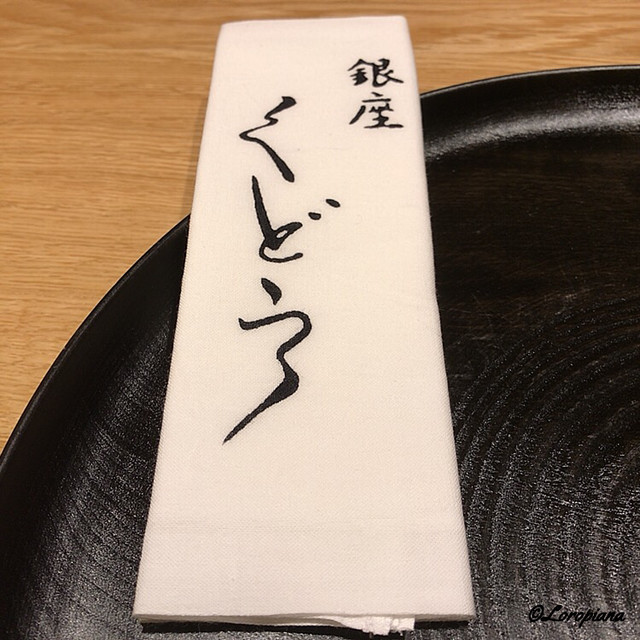 銀座
くどう
©Loropiana